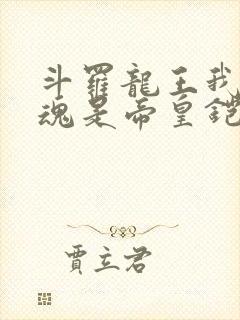 斗羅龍王我
魂是帝皇鎧
賈立君